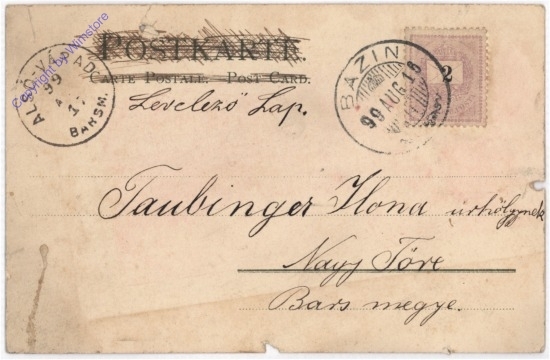 POSTKARTE.
CARTE POSTALE. POST CARD.
Levelező Lap.
ALSÓVÁRAD
99
17
BARSM.
BAZIN
99 AUG. 18
2
Taubinger Ilona úrhölgynek
Nagy Töre
Bars megye.
Copyright by Wimstore